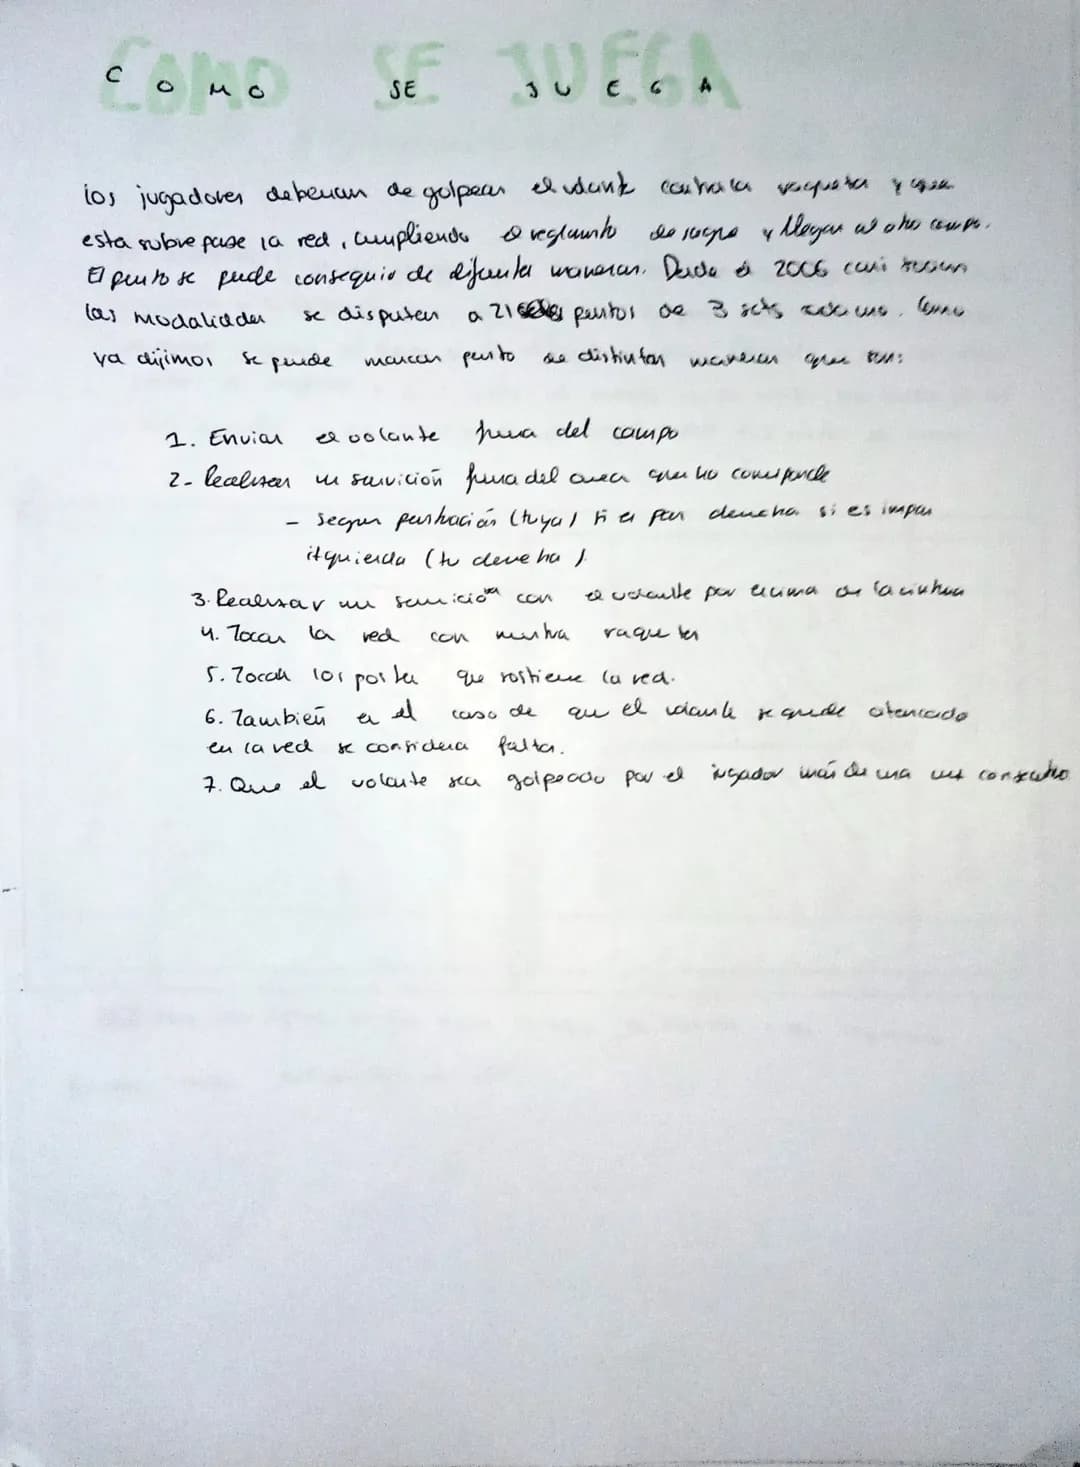 COMO SE JUEGA
C O M O SE J U E G A
los jugadores deberian de golpear el volante con la raqueta y que
esta sobre pase la red, cumpliendo el reglamento de saque y llegar al otro campo.
El punto se puede conseguir de diferentes maneras. Desde el 2006 casi todas
las modalidades se disputan a 21 puntos de 3 sets cada uno. Como
ya dijimos se puede marcar punto de distintas maneras que son:
1. Enviar el volante fuera del campo
2- Realizar un servición fuera del area que no corresponde
- Segun puntuación (tuya) si es par derecha si es impar
izquierda (tu derecha).
3. Realizar un servicio con el volante por encima de la cintura
4. Tocar la red con nuestra raqueta
5. Tocar los postes que sostiene la red.
6. Tambien en el caso de que el volante se quede atancado
en la red se considera falta.
7. Que el volante sea golpeado por el jugador mas de una vez consecutivo